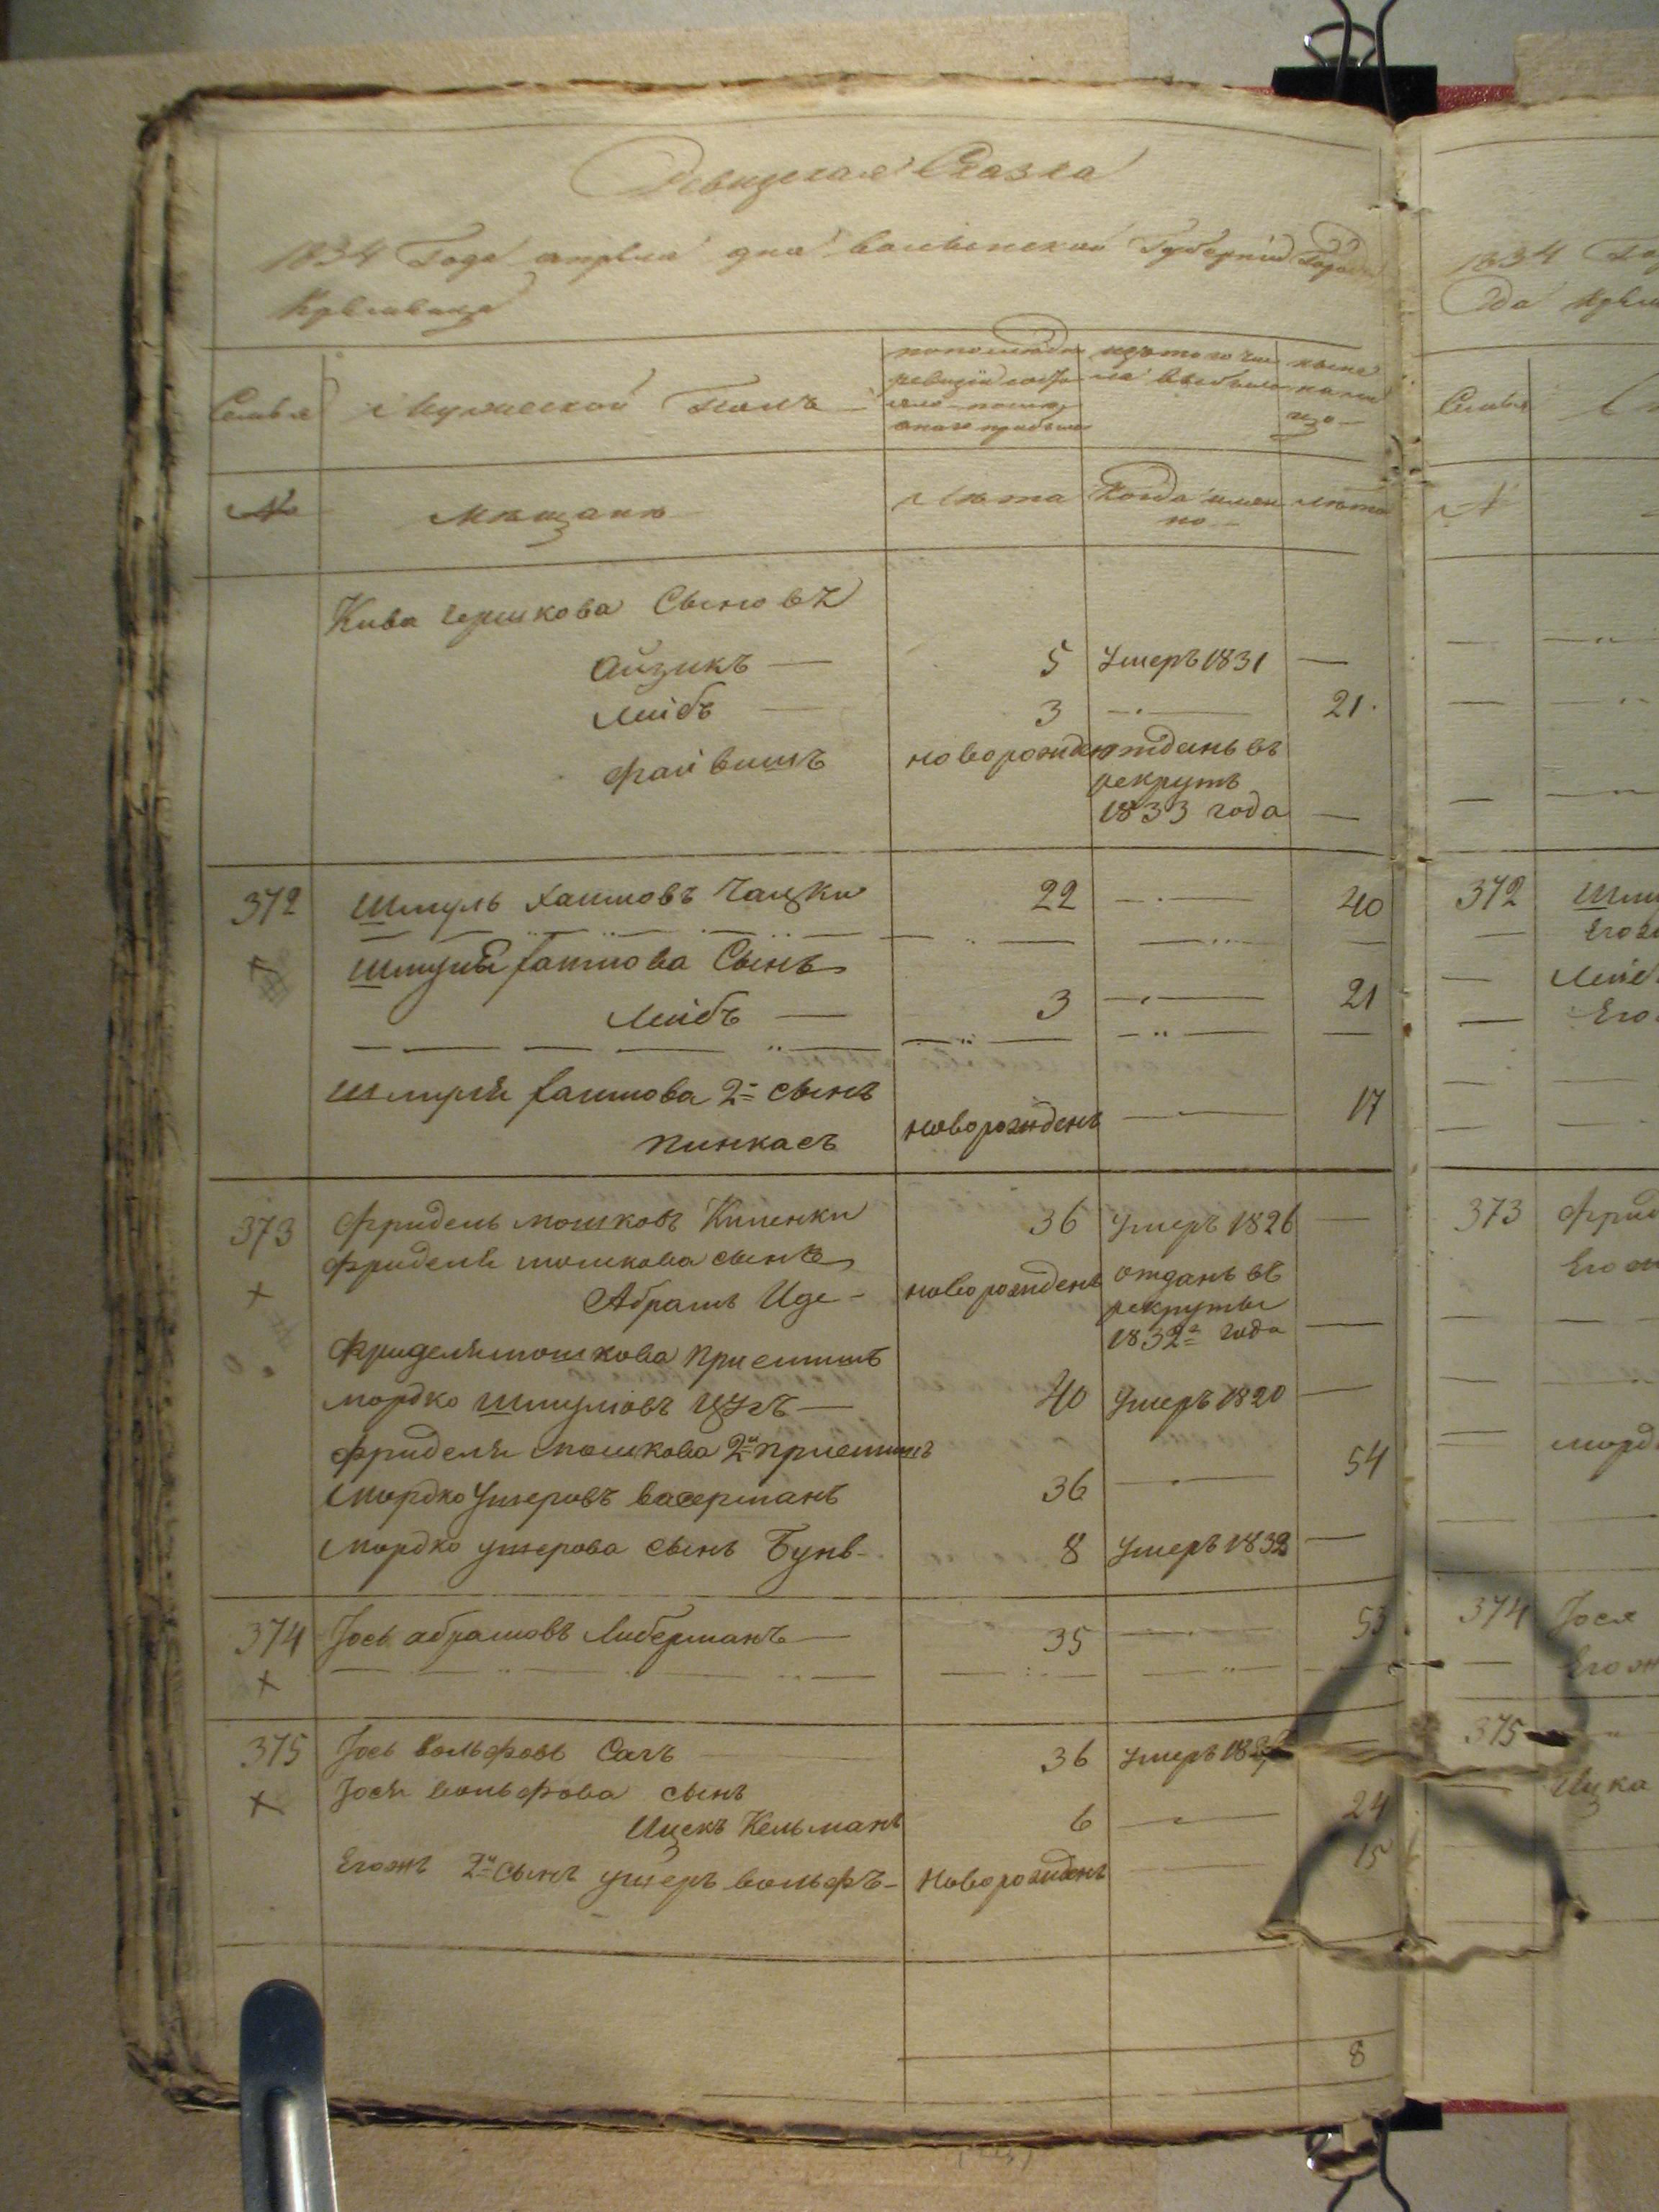 Ревизская Сказка
1834 Года апреля дня Волынской Губернии Города
Кременца
Семья Мужеской Полъ по последней ревизіи состояло и после оной прибыло изъ того числа выбыло ныне на лицо
№ Мещане Лета Когда именно лета
Кива Гершкова Сыновъ
Айзикъ — 5 Умеръ 1831 —
Лейбъ — 3 — 21
Файвишъ новорожден отданъ въ
рекрутъ
1833 года —
372 Шмуль Хаимовъ Чацки 22 — 40
Шмуля Хаимова Сынъ
Лейбъ — 3 — 21
Шмуля Хаимова 2й сынъ
Пинкасъ новорожденъ — 17
373 Фридель Мошковъ 36 Умеръ 1826 —
Фриделя Мошкова сынъ
Абрамъ Иде - новорожденъ отданъ въ
рекруты
1832го года —
Фриделя Мошкова Приемышъ
Мордко Шмулювъ — 40 Умеръ 1820 —
Фриделя Мошкова 2й Приемышъ
Мордко Ушеровъ Васерманъ 36 — 54
Мордко Ушерова сынъ 8 Умеръ —
374 Іось Абрамовъ Либерманъ — 35 — 53
375 Іось Вольфовъ — 36 Умеръ
Іося Вольфова сынъ
Ицекъ Кельманъ 6 — 24
Егожъ 2й сынъ Ушеръ Вольфъ - Новорожденъ — 15
8
1834
Семья
№
372
373
374 Іося
375
Ицка